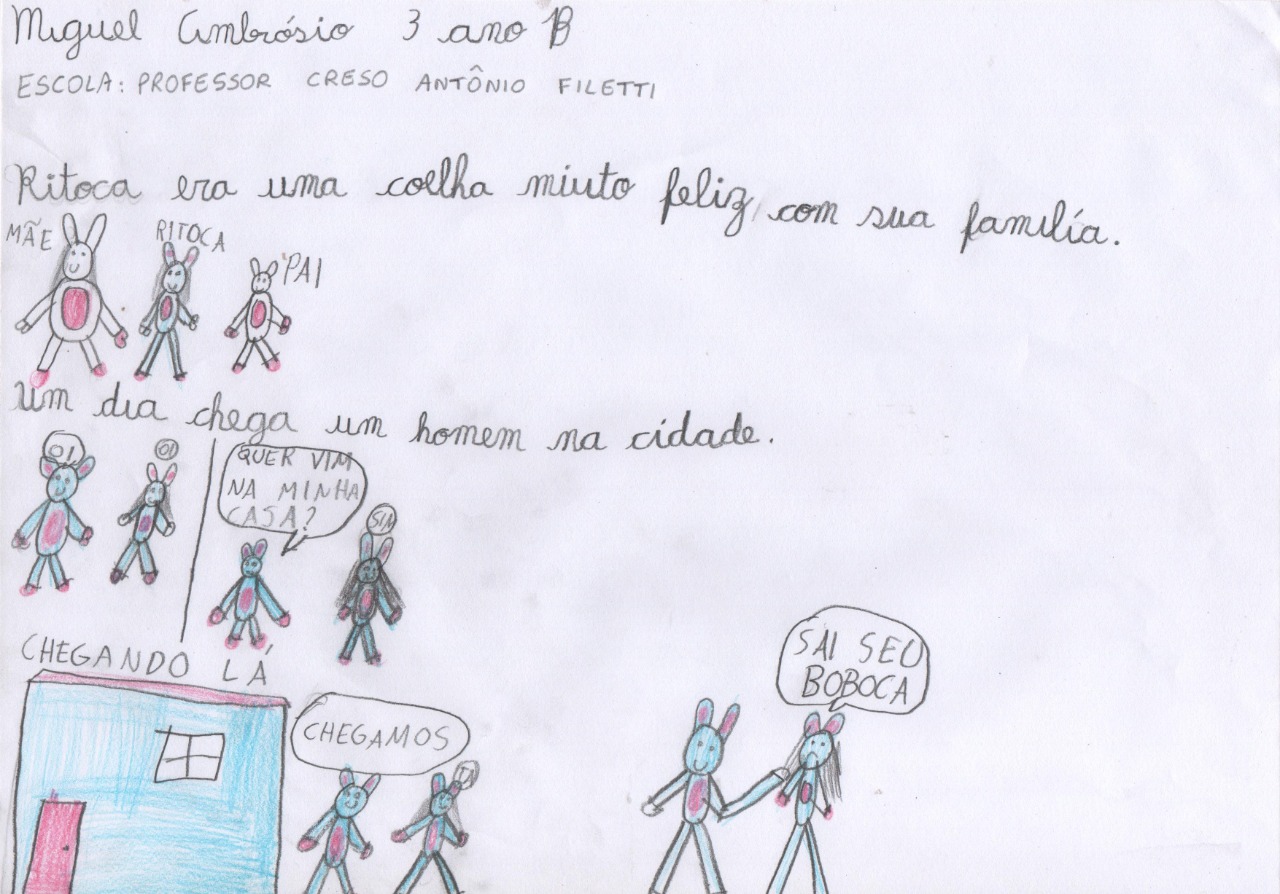 Miguel Ambrósio 3 ano B
ESCOLA: PROFESSOR CRESO ANTÔNIO FILETTI
Ritoca era uma coelha miuto feliz, com sua família.
MÃE
RITOCA
PAI
Um dia chega um homem na cidade.
OI
OI
QUER VIM
NA MINHA
CASA?
SIM
CHEGANDO LÁ
CHEGAMOS
SAI SEU
BOBOCA